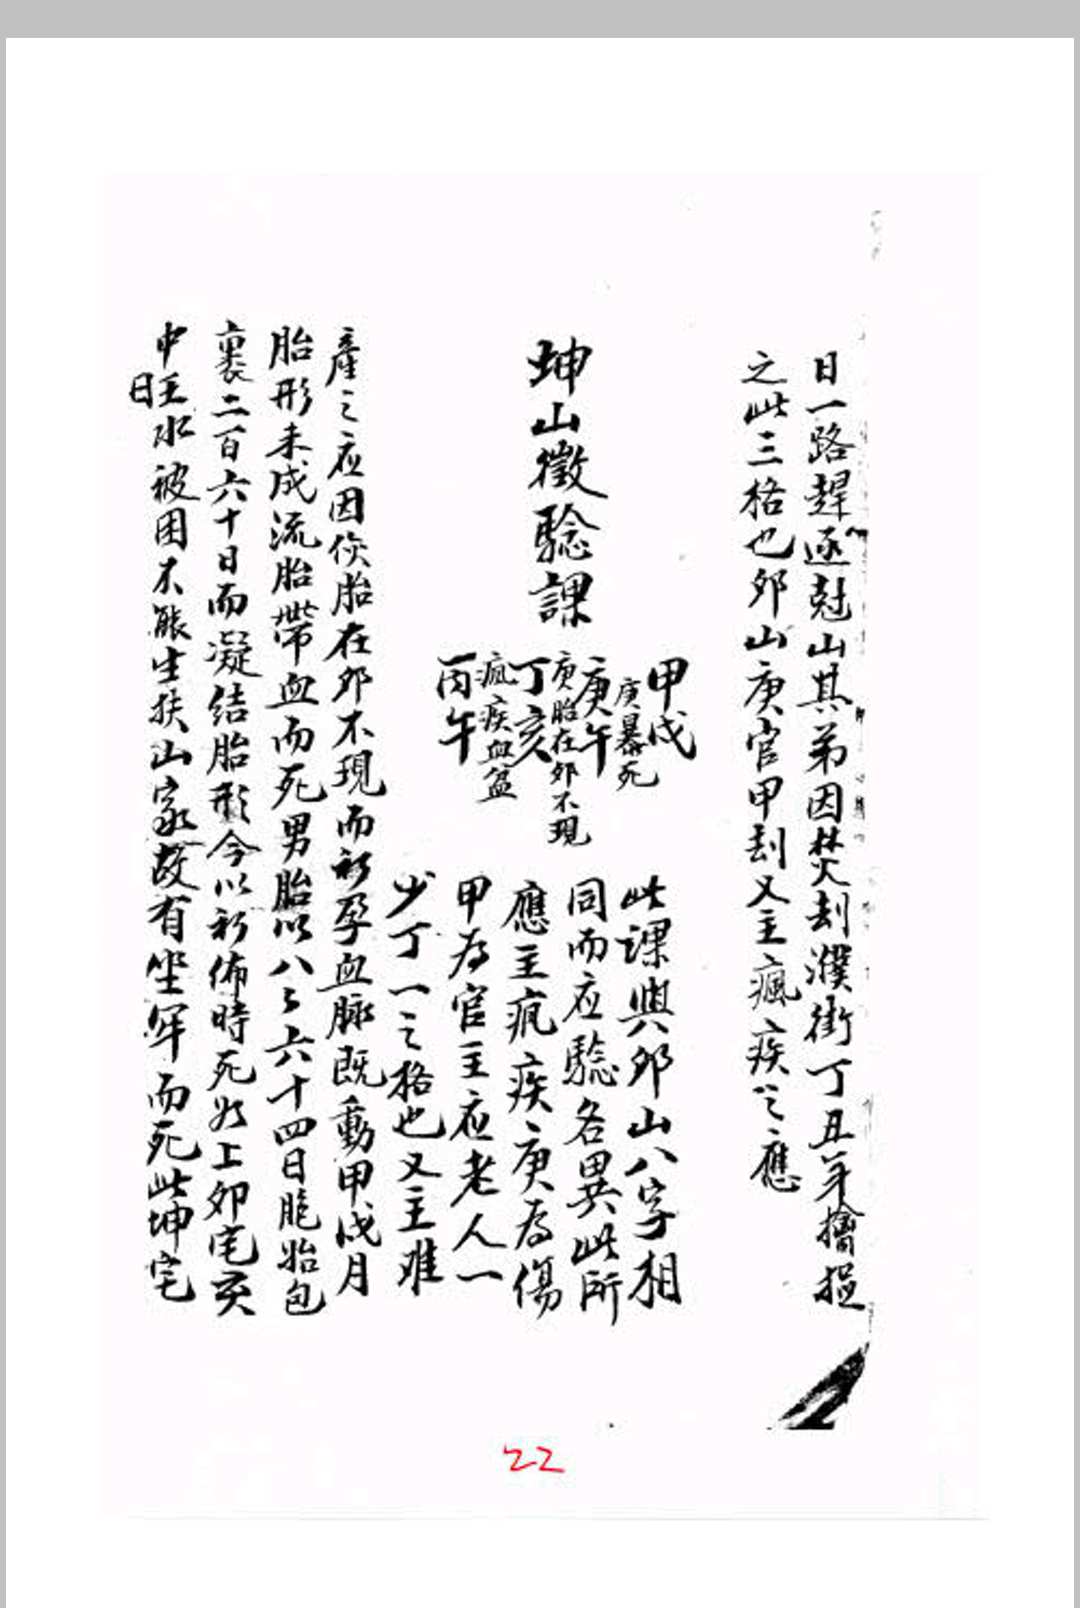 日一路趕逐尅山其弟因焚刦濮街丁丑年擒
之此三格也卯山庚官甲刦又主瘋疾之應
坤山徵驗課
甲戌
庚暴死
庚午
庚胎在卯不現
丁亥
瘋疾血盆
丙午
此課與卯山八字相
同而应驗各異此所
應主疯疾庚為傷
甲為官主应老人一
少丁一之格也又主难
產之应因伤胎在卯不現而新孕血脉既動甲戌月
胎形未成流胎帶血而死男胎以八八六十四日胞胎包
裹二百六十日而凝結胎形今以新佈時死於上卯宅亥
中旺水被困不能生扶山家故有坐牢而死此坤宅
日
22